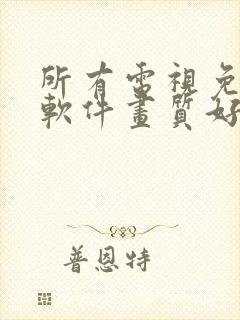 所有電視免
軟件畫質好
普恩特